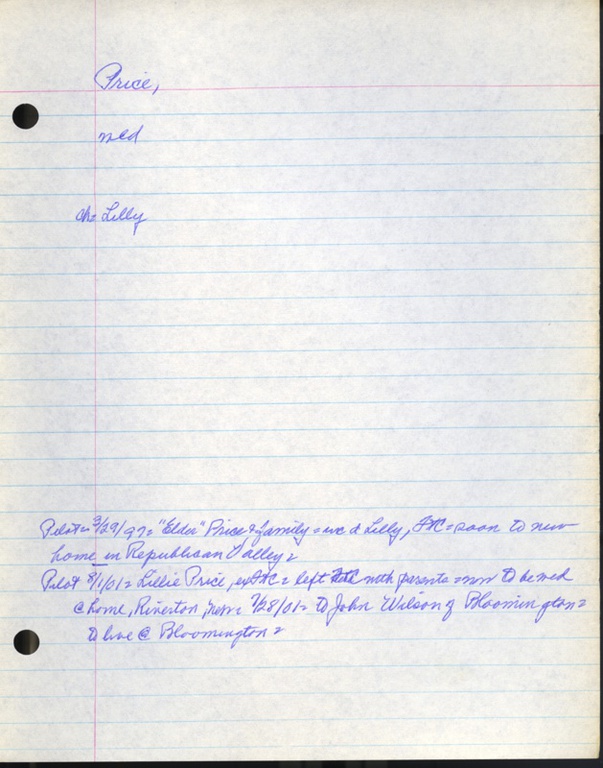 Price,
med
ch= Lilly
Pilot= 3/29/97= "Elder" Price & family = wc d Lilly, = soon to new
home in Republican Valley=
Pilot 8/1/01= Lillie Price, = left with parents = now to be wed
@ home, Riverton, = 7/28/01= to John Wilson of Bloomington=
to live @ Bloomington=